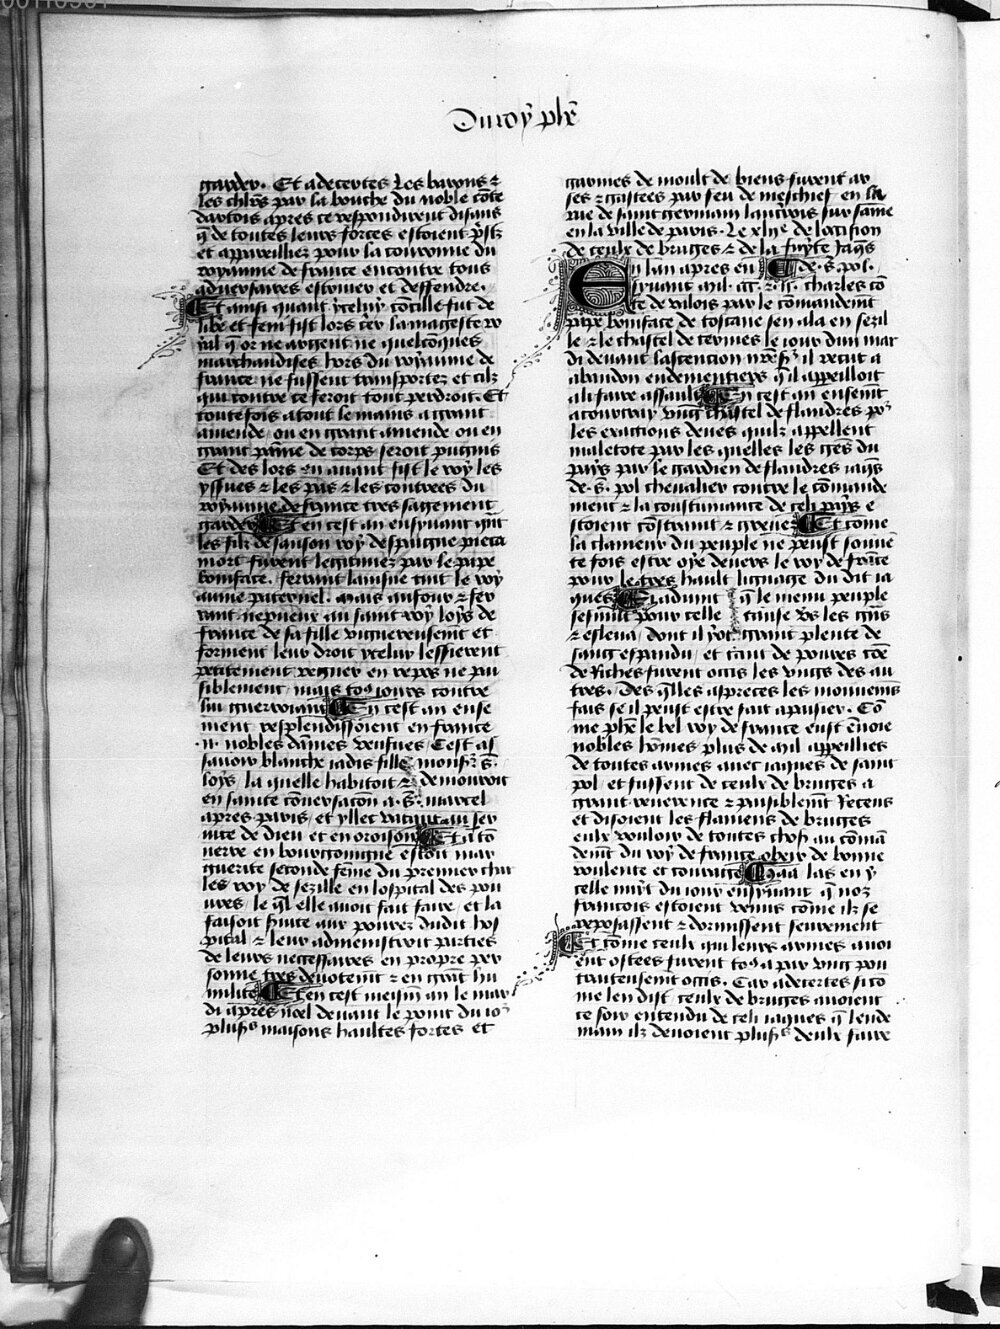 Du roy phẽ
garder. Et adecertes les barons ⁊
les chlrs par la bouche du noble cõte
dartois apres ce respondirent disans
q̃ de toutes leurs forces estoient p̃stz
et appareilliez pour la couronne du
royaume de france encontre tous
aduersaires estriuer et deffendre.
Et ainsi quant ycelui cõcille fut de
libe et feni fist lors cry la mageste ro
yal q̃ or ne argent ne quelcoques
marchandises hors du royaume de
france ne fussent transportez et cilz
qui contre ce feroit tout perdroit. Et
toutefois a tout le mains a grant
amende ou en grant amende ou en
grant paine de corps seroit pugnis
Et des lors en auant fist le roy les
yssues ⁊ les pas ⁊ les contrees du
royaume de france tres sagement
garder Et en cest an ensyuant que
les filz de sanson roy despaigne pieca
mort furent legitimez par le pape
boniface. ferrant lainsne tint le roy
aume paternel. mais aufour ⁊ fer
rant nepueux au saint roy loys de
france de sa fille vigueureusemt et
forment leur droit ycelui lessierent
petitement regner en repos ne pai
siblement mais to9 iours contre
lui guerroiant En cest an ense
ment resplendissoient en france
.ii. nobles dãmes veufues Cest as
sauoir blanche iadis fille monsr s.
loys la quelle habitoit ⁊ demouroit
en sainte cõuersacõn a .s. marcel
apres paris et yllec vacquant au ser
uice de dieu et en oroisons Et a tõ
nerre en bourgoingne estoit mar
guerite seconde fẽme du premier char
les roy de sezille en lospital des pou
ures le q̃l elle auoit fait faire et la
faisoit seruite aux poures dudit hos
pital ⁊ leur administroit parties
de leurs necessaires en propre per
sonne tres deuotement ⁊ en grãt hu
milite Et en cest meisme an le mar
di apres noel deuant le point du io2
plusrs maisons haultes fortes et
garnies de moult de biens furent ar
ses ⁊ gastees par feu de meschief en la
rue de saint germain laucrois sur saine
en la ville de paris. Le xlije de loccision
de ceulx de bruges ⁊ de la fuyte iaq̃s
En lan apres en de .s. pol.
syuant mil. ccc. ⁊ .ii. charles cõ
te de valois par le cõmandemt
pape boniface de toscane sen ala en sezil
le ⁊ le chastel de termes le iour dun mar
di deuant lascention nr̃e sr il receut a
abandon endementiers q̃ il appeilloit
a li faire assault En cest an ensemt
a courtray vng chastel de flandres po2
les exactions deues quilz appellent
maletote par les quelles les gẽs du
pays par le gardien de flandres iaq̃s
de .s. pol cheualier contre le cõmande
ment ⁊ la coustumance de celi pays e
stoient cõstraint ⁊ greue Et cõme
la clameur du peuple ne peust souue
te fois estre oye deuers le roy de frãce
pour le tres hault lignage du dit ia
ques Il aduint q̃ le menu peuple
sesmut pour celle cause vs les gens
⁊ esleua dont il y ot grant plente de
sanc espandu et tant de poures cõe
de Riches furent occis les vngs des au
tres. Des q̃lles aspreces les mouuems
fais se il peust estre fait apaisier. Cõ
me phe le bel roy de france eust enuoie
nobles hõmes plus de mil appeillies
de toutes armes auec iaques de saint
pol et fussent de ceulx de bruges a
grant reuerence ⁊ paisiblemt Receus
et disoient les flamens de bruges
eulx vouloir de toutes choses au cõmã
demt du roy de france obeir de bonne
voulente et courage Maa las en y
celle nuyt du iour ensyuant q̃ noz
francois estoient venus cõme ilz se
reposassent ⁊ dormissent seurement
Et cõme ceulx qui leurs armes auoi
ent ostees furent to9 a par vng pou
traiteusemt occis. Car adecertes si co
me len dist ceulx de bruges auoient
ce soir entendu de celi iaques q̃ lende
main ilz deuoient plusrs deulx faire